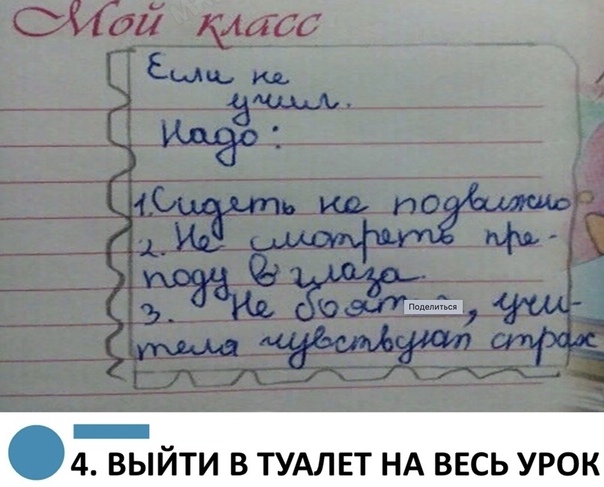 Мой класс
Если не
учил.
Надо:
1. Сидеть не подвижно
2. Не смотреть пре-
поду в глаза.
3. Не боят , учи-
Поделиться
теля чувствуют страх
4. ВЫЙТИ В ТУАЛЕТ НА ВЕСЬ УРОК